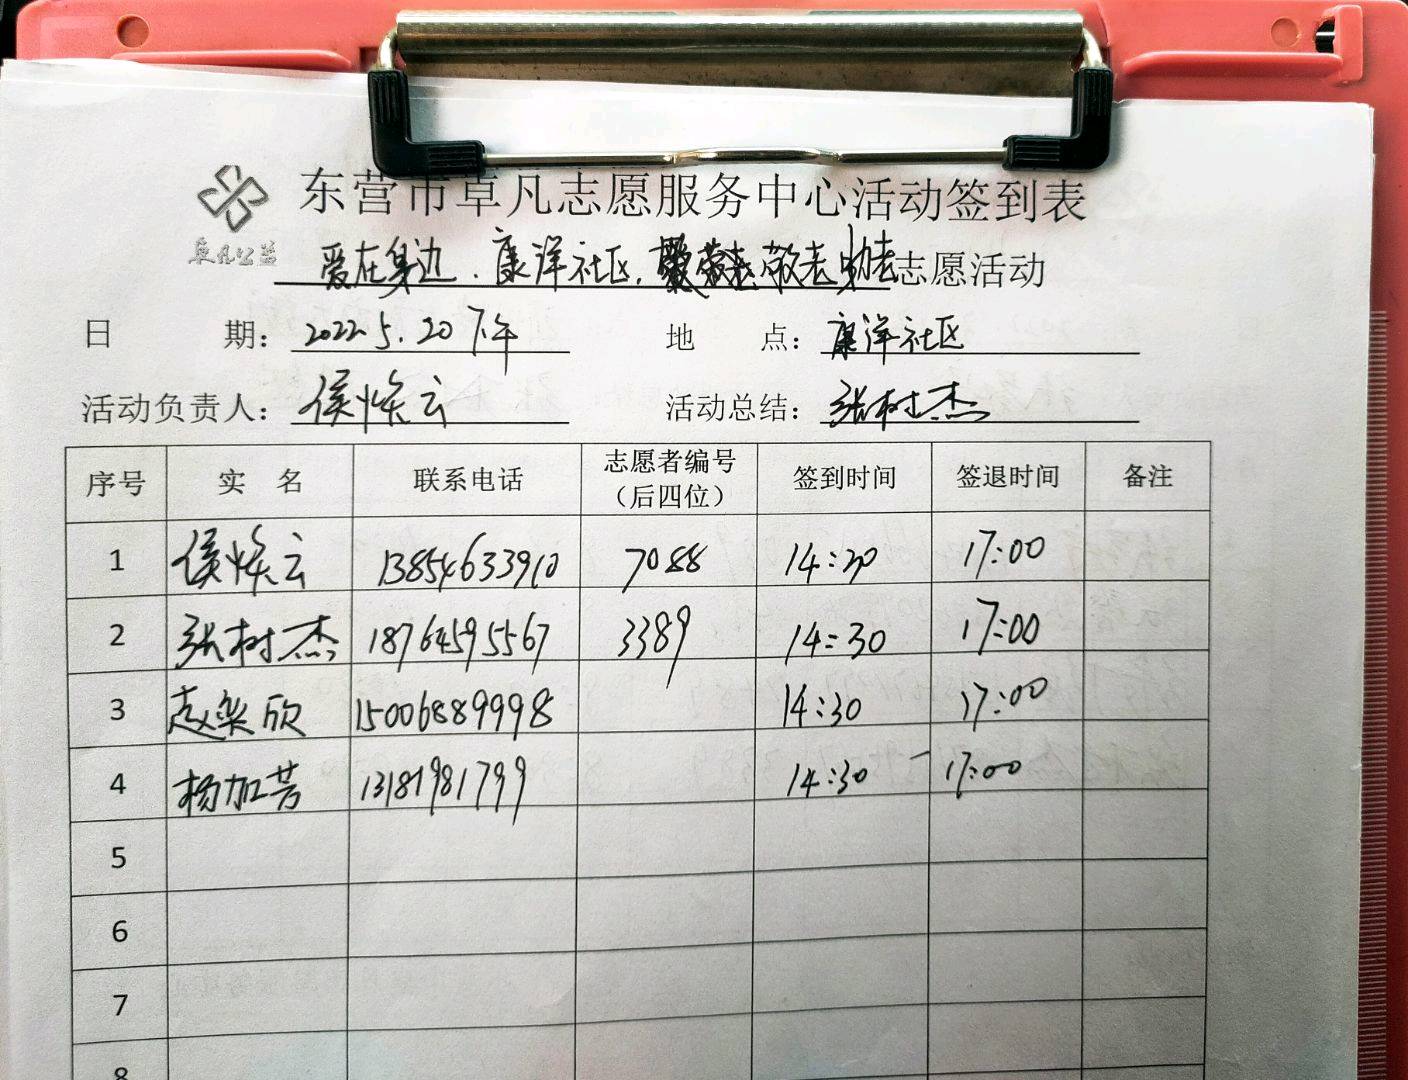 东营市草凡志愿服务中心活动签到表
草凡公益
爱在身边.康洋社区,敬老助老志愿活动
日期: 2022.5.20下午 地点: 康洋社区
活动负责人: 侯焕云 活动总结: 张树杰
序号 实名 联系电话 志愿者编号(后四位) 签到时间 签退时间 备注
1 侯焕云 13854633910 7088 14:30 17:00
2 张树杰 18764595567 3389 14:30 17:00
3 赵梁欣 15006889998 14:30 17:00
4 杨加芳 13181981799 14:30 17:00
5
6
7
8